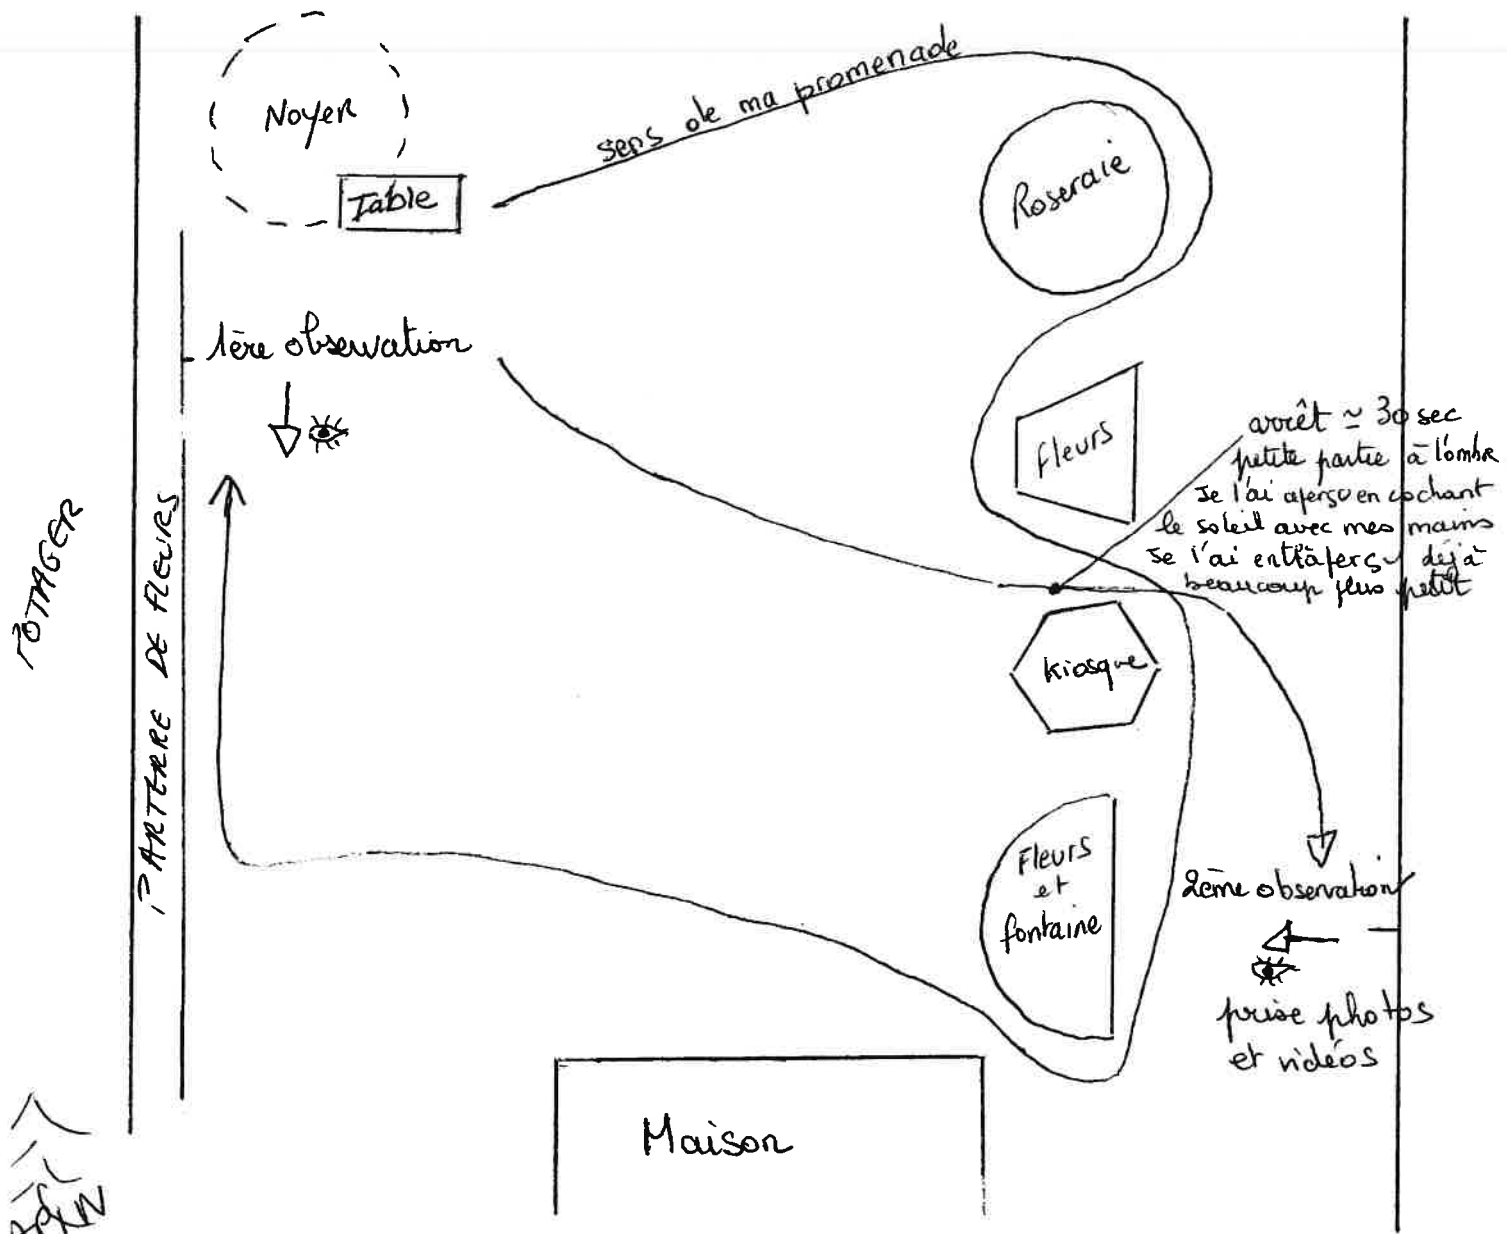 Noyer
Table
sens de ma promenade
Roseraie
1ère observation
fleurs
arrêt ≃ 30 sec
petite partie à l'ombre
Je l'ai aperçu en cochant
le soleil avec mes mains
Je l'ai entraperçu déjà
beaucoup plus petit
POTAGER
PARTERRE DE FLEURS
Kiosque
Fleurs
et
fontaine
2ème observation
prise photos
et vidéos
Maison